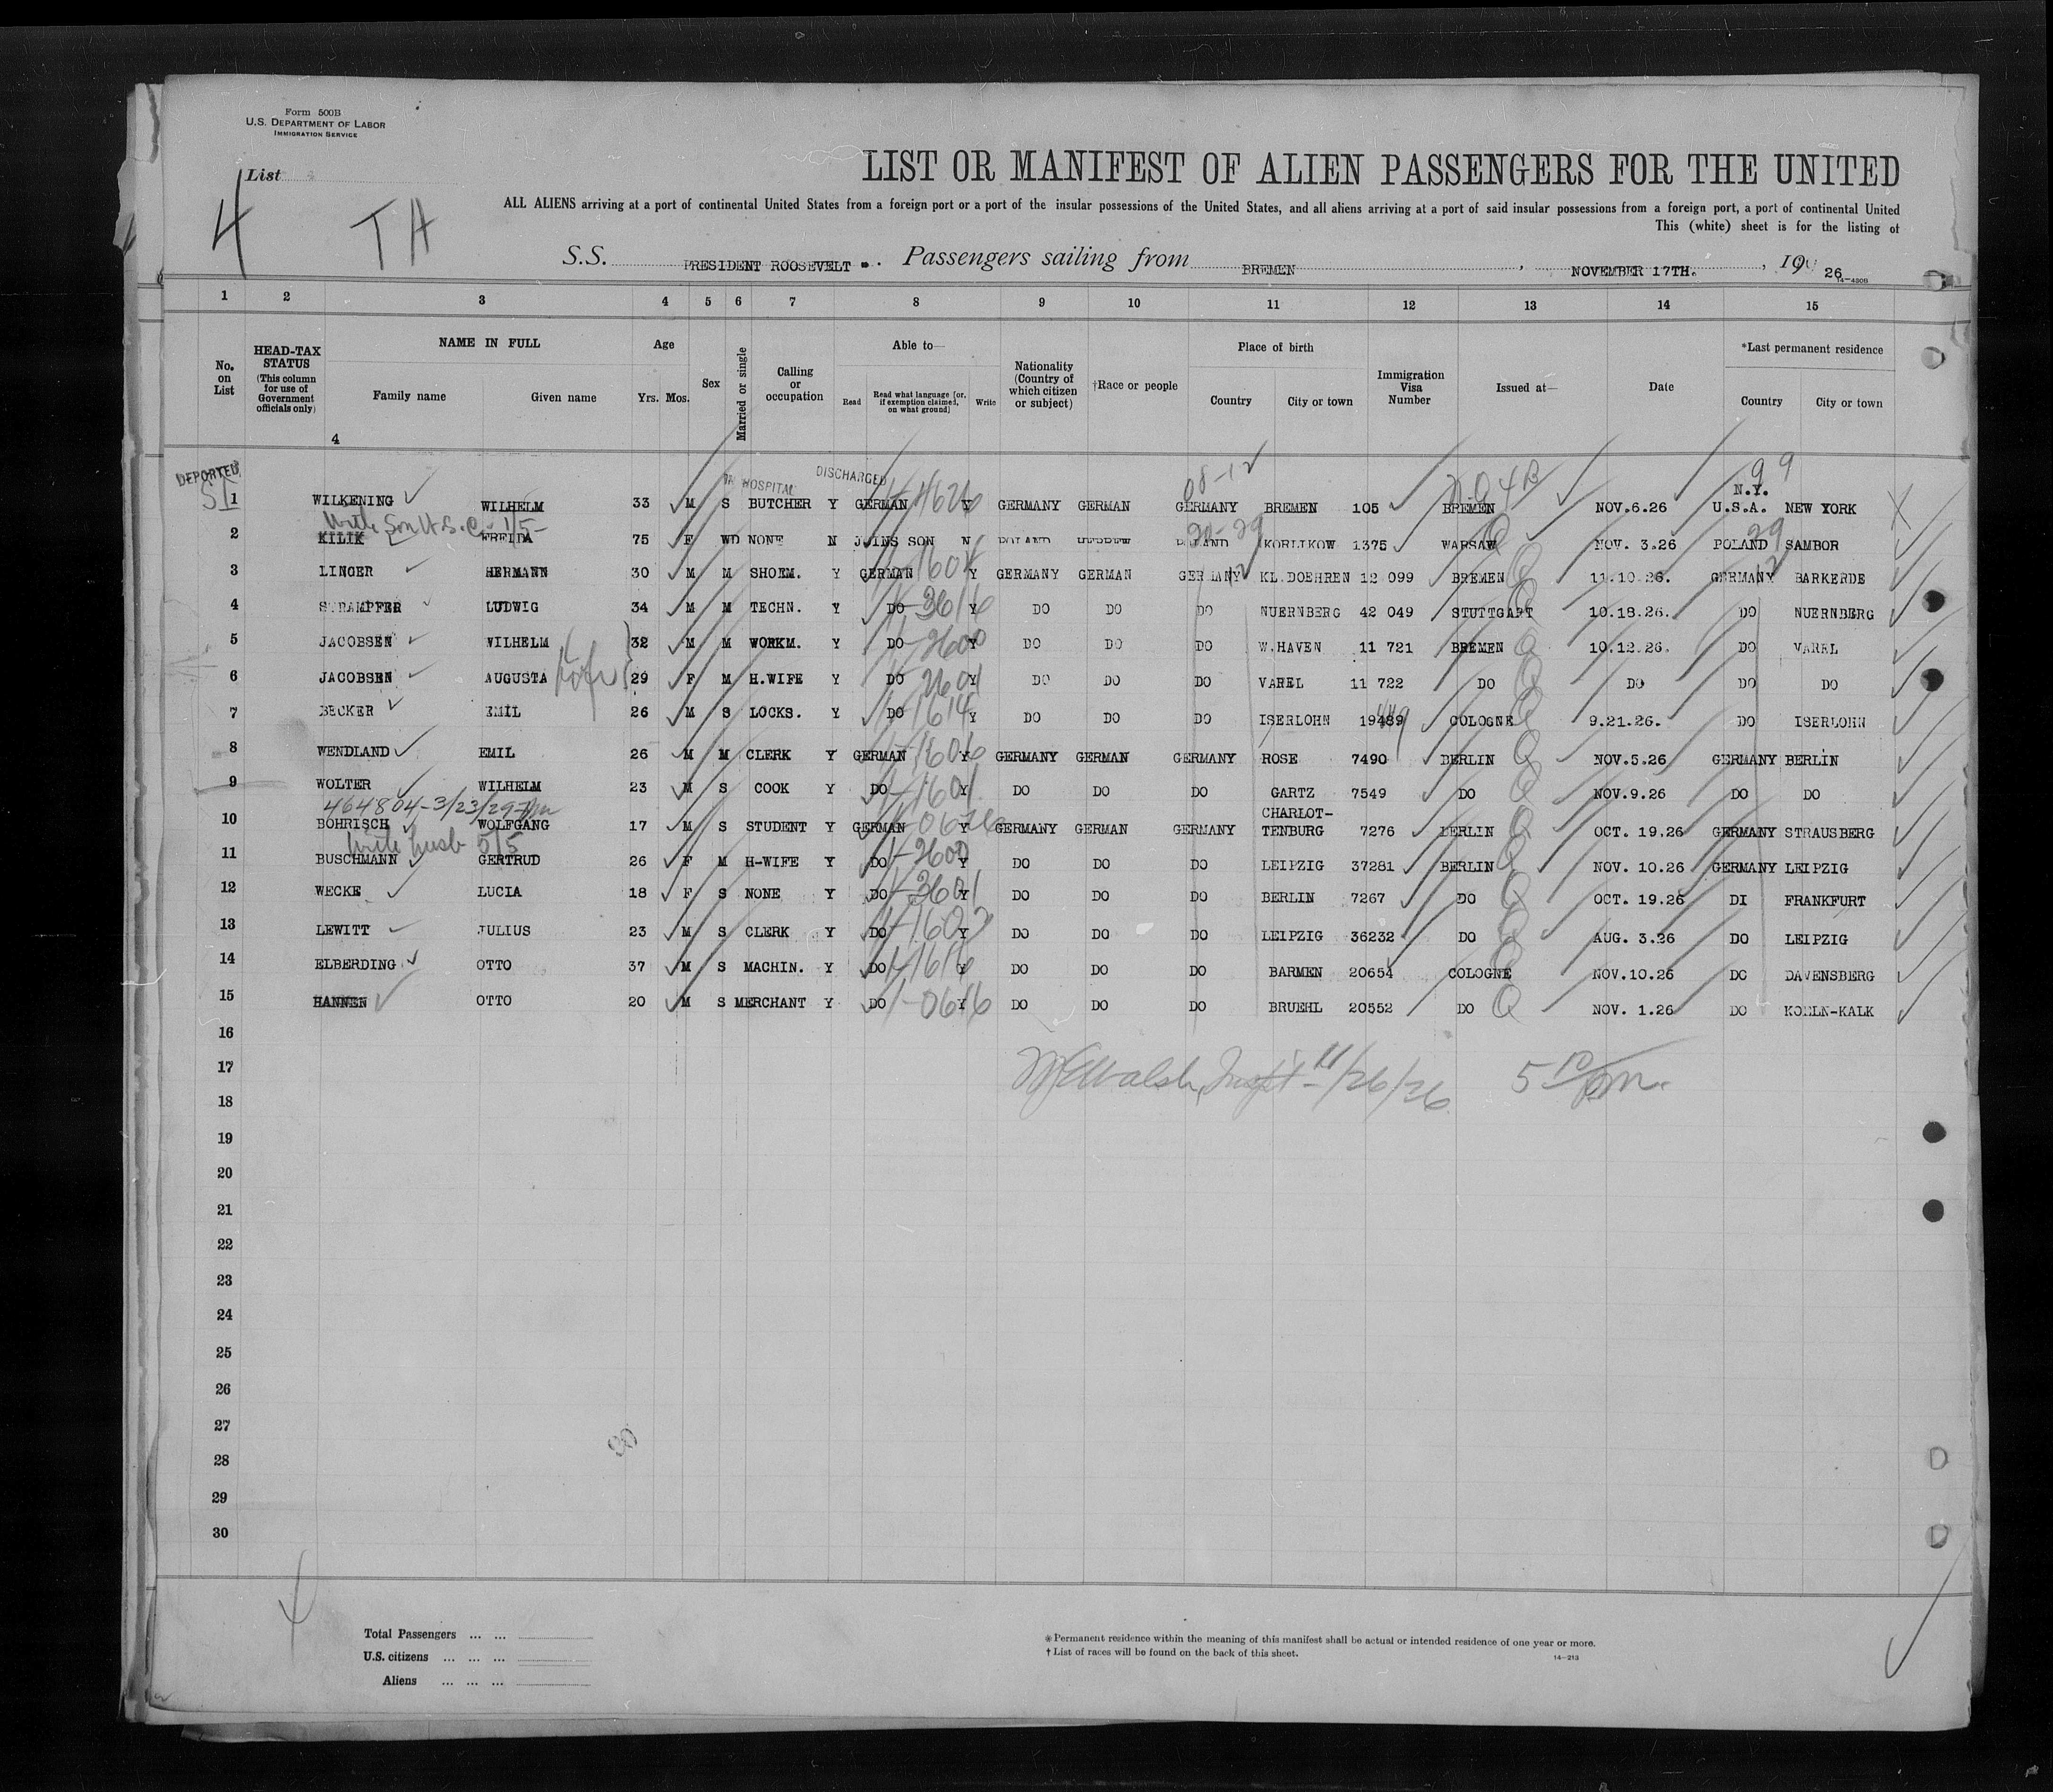 Form 500B
U.S. DEPARTMENT OF LABOR
IMMIGRATION SERVICE
List
4 TA
LIST OR MANIFEST OF ALIEN PASSENGERS FOR THE UNITED
ALL ALIENS arriving at a port of continental United States from a foreign port or a port of the insular possessions of the United States, and all aliens arriving at a port of said insular possessions from a foreign port, a port of continental United
This (white) sheet is for the listing of
S.S. PRESIDENT ROOSEVELT . Passengers sailing from BREMEN , NOVEMBER 17TH. , 19 26
14-430B
1 2 3 4 5 6 7 8 9 10 11 12 13 14 15
No. on List
HEAD-TAX STATUS (This column for use of Government officials only)
NAME IN FULL Family name Given name
Age Yrs. Mos.
Sex
Married or single
Calling or occupation
Able to— Read Read what language [or, if exemption claimed, on what ground] Write
Nationality (Country of which citizen or subject)
†Race or people
Place of birth Country City or town
Immigration Visa Number
Issued at—
Date
*Last permanent residence Country City or town
4
DEPORTED IN HOSPITAL DISCHARGED 08-12 99
SI N.Y.
1 WILKENING WILHELM 33 M S BUTCHER Y GERMAN Y GERMANY GERMAN GERMANY BREMEN 105 BREMEN NOV.6.26 U.S.A. NEW YORK
2 KILIK FREIDA 75 F WD NONE N JOINS SON N POLAND HEBREW POLAND KORLIKOW 1375 WARSAW NOV. 3.26 POLAND SAMBOR
3 LINGER HERMANN 30 M M SHOEM. Y GERMAN Y GERMANY GERMAN GERMANY KL.DOEHREN 12 099 BREMEN 11.10.26. GERMANY BARKERDE
4 STRAMPFER LUDWIG 34 M M TECHN. Y DO Y DO DO DO NUERNBERG 42 049 STUTTGART 10.18.26. DO NUERNBERG
5 JACOBSEN WILHELM 32 M M WORKM. Y DO Y DO DO DO W.HAVEN 11 721 BREMEN 10.12.26. DO VAREL
6 JACOBSEN AUGUSTA 29 F M H.WIFE Y DO Y DO DO DO VAREL 11 722 DO DO DO DO
7 BECKER EMIL 26 M S LOCKS. Y DO Y DO DO DO ISERLOHN 19489 COLOGNE 9.21.26. DO ISERLOHN
8 WENDLAND EMIL 26 M M CLERK Y GERMAN Y GERMANY GERMAN GERMANY ROSE 7490 BERLIN NOV.5.26 GERMANY BERLIN
9 WOLTER WILHELM 23 M S COOK Y DO Y DO DO DO GARTZ 7549 DO NOV.9.26 DO DO
464804-3/23/29 CHARLOT-
10 BOHRISCH WOLFGANG 17 M S STUDENT Y GERMAN Y GERMANY GERMAN GERMANY TENBURG 7276 BERLIN OCT. 19.26 GERMANY STRAUSBERG
11 BUSCHMANN GERTRUD 26 F M H-WIFE Y DO Y DO DO DO LEIPZIG 37281 BERLIN NOV. 10.26 GERMANY LEIPZIG
12 WECKE LUCIA 18 F S NONE Y DO Y DO DO DO BERLIN 7267 DO OCT. 19.26 DI FRANKFURT
13 LEWITT JULIUS 23 M S CLERK Y DO Y DO DO DO LEIPZIG 36232 DO AUG. 3.26 DO LEIPZIG
14 ELBERDING OTTO 37 M S MACHIN. Y DO Y DO DO DO BARMEN 20654 COLOGNE NOV.10.26 DO DAVENSBERG
15 HANNEN OTTO 20 M S MERCHANT Y DO Y DO DO DO BRUEHL 20552 DO NOV. 1.26 DO KOELN-KALK
16
17 Walsh, Insp't 11/26/26 5 PM.
18
19
20
21
22
23
24
25
26
27
28
29
30
Total Passengers ... ...
U.S. citizens ... ... ...
Aliens ... ... ...
* Permanent residence within the meaning of this manifest shall be actual or intended residence of one year or more.
† List of races will be found on the back of this sheet.
14-213